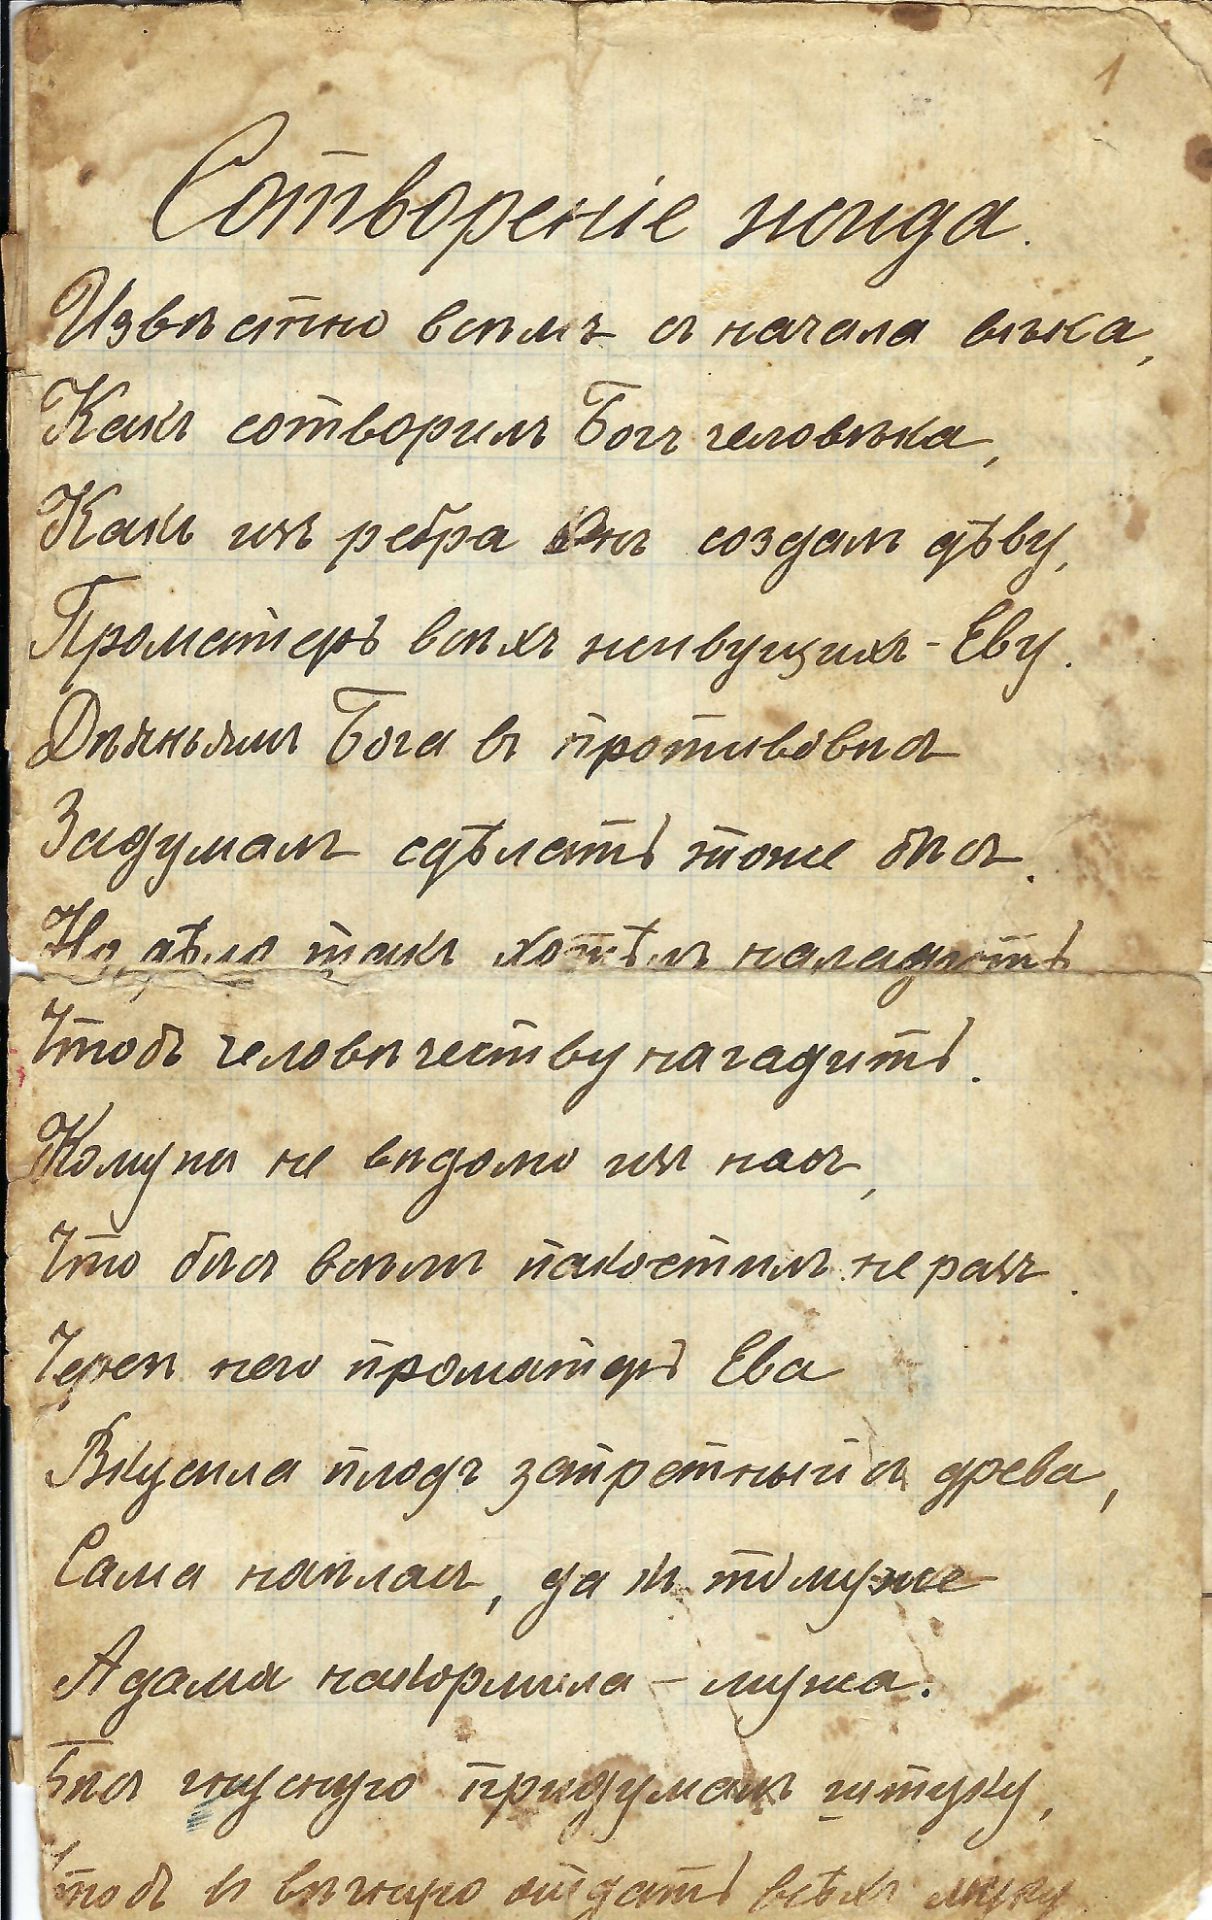 1
Сотворенiе жида.
Извѣстно всѣмъ съ начала вѣка,
Какъ сотворилъ Богъ человѣка,
Какъ изъ ребра Онъ создалъ дѣву,
Праматерь всѣхъ живущихъ - Еву.
Дѣяньямъ Бога въ противовѣсъ
Задумалъ сдѣлать тоже бѣсъ.
Но дѣло такъ хотѣлъ наладить
Чтобъ человѣчеству нагадить.
Кому же не вѣдомо изъ насъ,
Что бѣсъ всѣмъ пакостилъ не разъ.
Черезъ него праматерь Ева
Вкусила плодъ запретный съ древа,
Сама наѣлась, да къ тому же
Адама накормила - мужа.
Бѣсъ гнусную придумалъ штуку,
Чтобъ въ вѣчную отдать всѣхъ муку